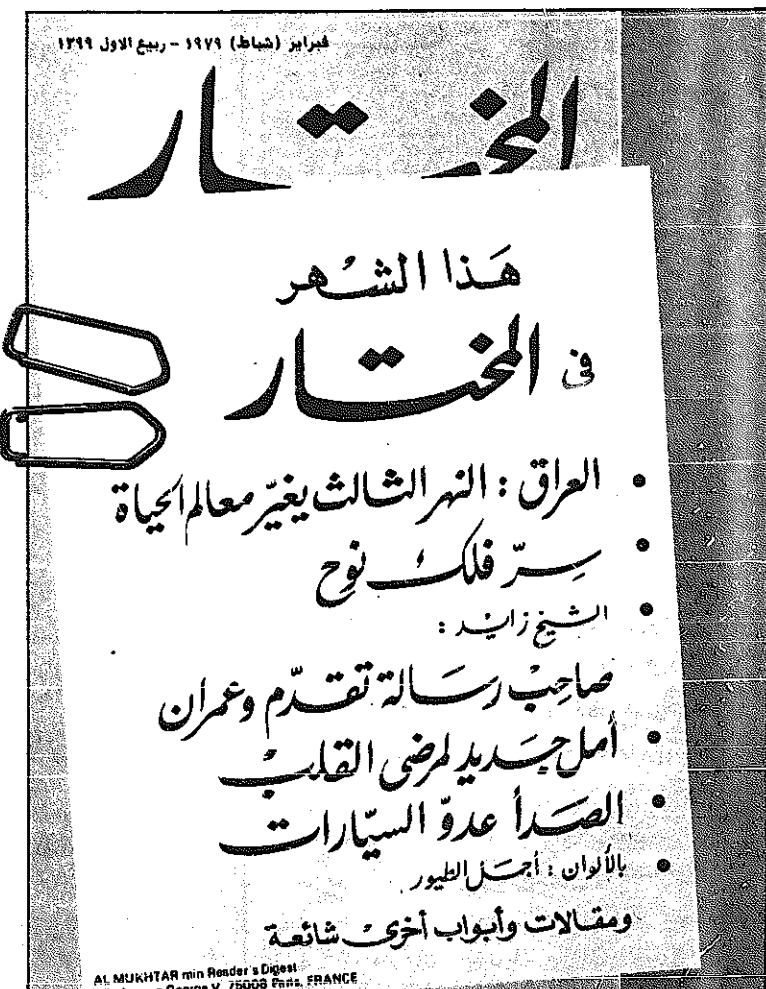 فبراير (شباط) ١٩٧٩ – ربيع الاول ١٣٩٩
المختار
هَذا الشهر
في المختار
• العراق : النهر الثالث يغيّر معالم الحياة
• سِرّ فلك نوح
• الشيخ زايد :
صاحِبْ رسَالة تقدّم وعمران
• أمل جديد لمرضى القلب
• الصَدأ عدوّ السيّارات
• بالألوان : أجمَل الطيور
ومقالات وأبواب أخرى شائعة
AL MUKHTAR min Reader's Digest
George V, 75008 Paris, FRANCE